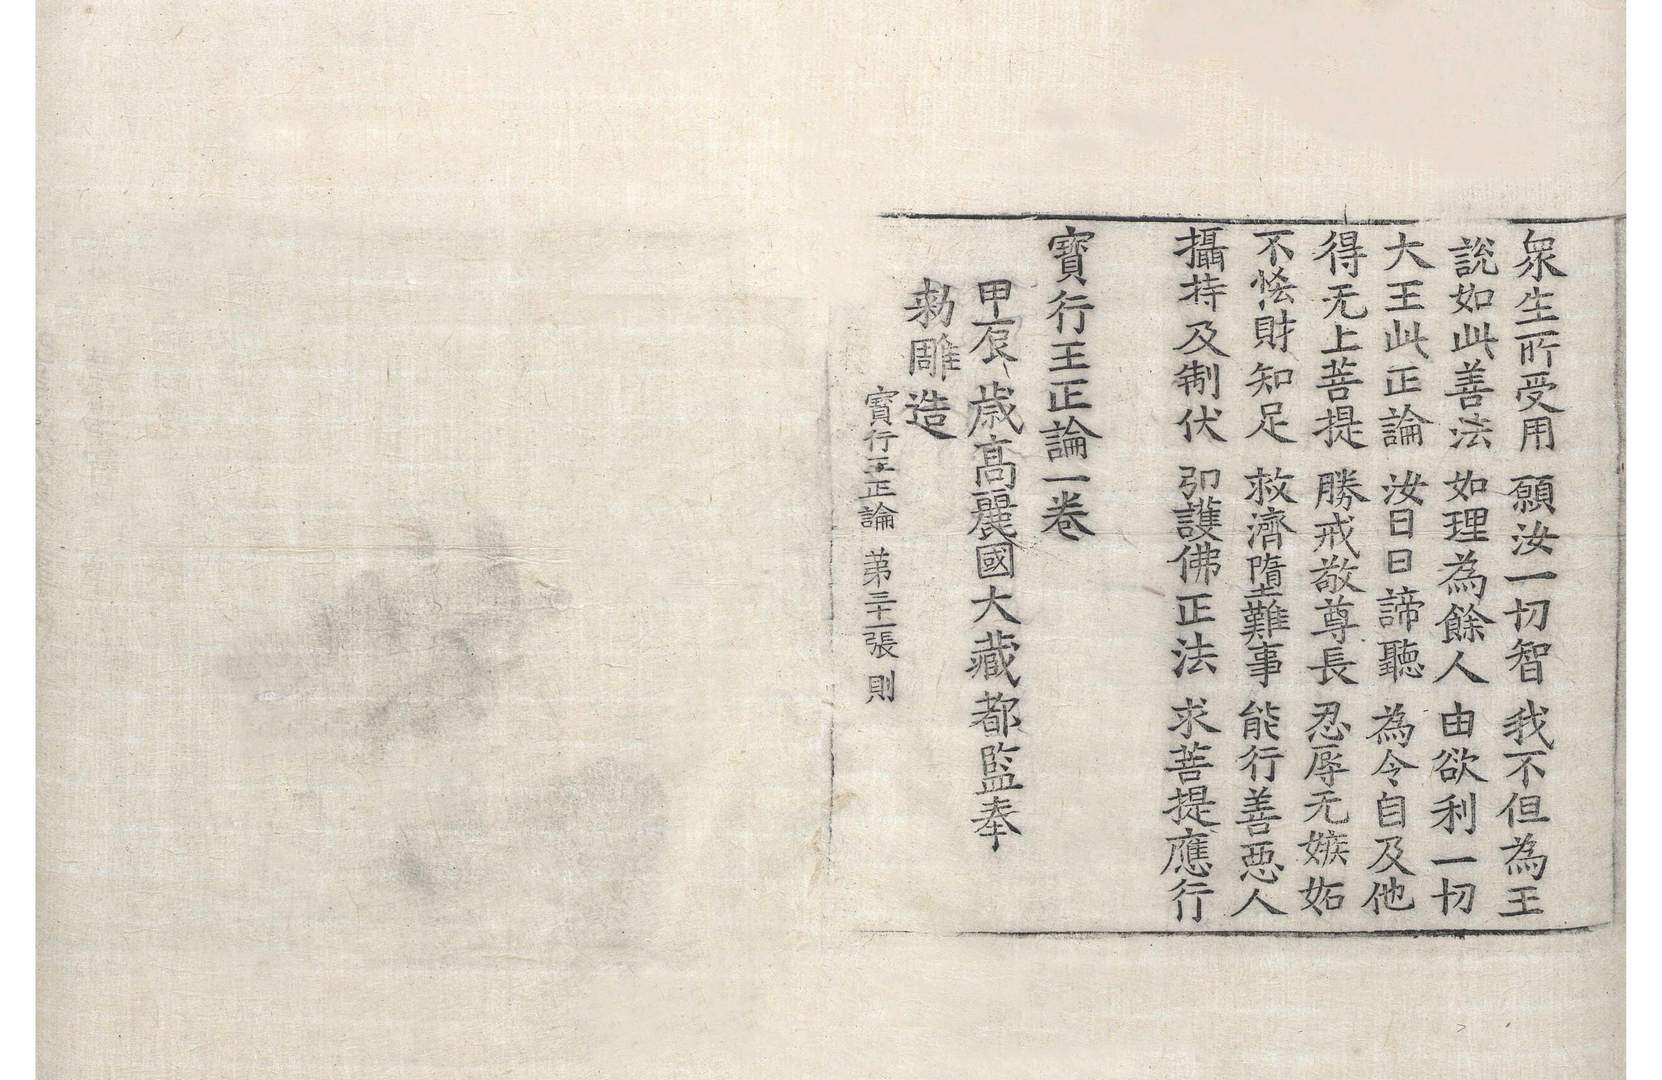 衆生所受用 願汝一切智 我不但為王
說如此善法 如理為餘人 由欲利一切
大王此正論 汝日日諦聽 為令自及他
得无上菩提 勝戒敬尊長 忍辱无嫉妬
不悋財知足 救濟墮難事 能行善惡人
攝持及制伏 弘護佛正法 求菩提應行
寶行王正論一卷
甲辰歲高麗國大藏都監奉
勅雕造
寶行王正論 第三十一張 則